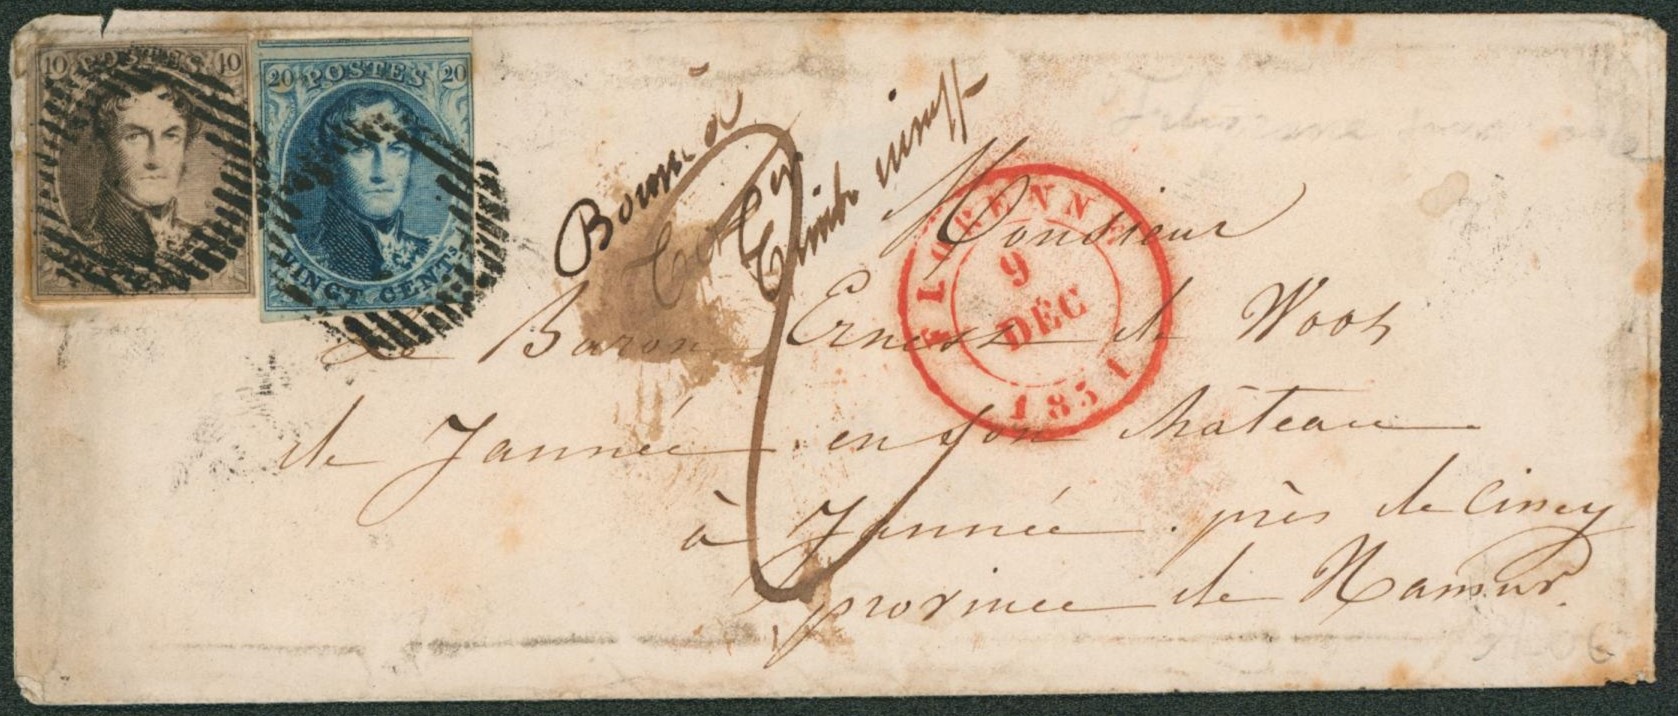 10 POSTES 10
20 POSTES 20
VINGT CENTS
FLORENNES
9
DÉC
1851
Monsieur
Le Baron Ernest de Woot
de Jannée en son château
à Jannée près de Ciney
province de Namur.